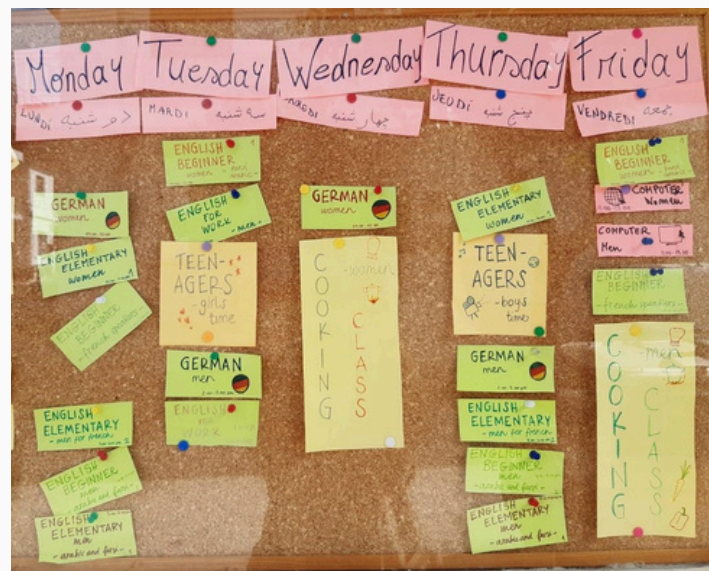 Monday
LUNDI دو شنبه
GERMAN
women
ENGLISH
ELEMENTARY
women
ENGLISH
BEGINNER
- french speakers -
ENGLISH
ELEMENTARY
- men for french
ENGLISH
BEGINNER
men
- arabic and farsi -
ENGLISH
ELEMENTARY
men
- arabic and farsi -
Tuesday
MARDI سه شنبه
ENGLISH
BEGINNER
women
ENGLISH
FOR
WORK
- men -
TEEN-
AGERS
- girls
time
GERMAN
men
ENGLISH
WORK
Wednesday
چهار شنبه
GERMAN
women
COOKING
CLASS
- women
Thursday
JEUDI پنج شنبه
ENGLISH
ELEMENTARY
women
TEEN-
AGERS
- boys
time
GERMAN
men
ENGLISH
ELEMENTARY
- men for french
ENGLISH
BEGINNER
men
- arabic and farsi -
ENGLISH
ELEMENTARY
men
- arabic and farsi -
Friday
VENDREDI جمعه
ENGLISH
BEGINNER
women
COMPUTER
Women
COMPUTER
Men
ENGLISH
BEGINNER
- french speakers -
COOKING
CLASS
- men